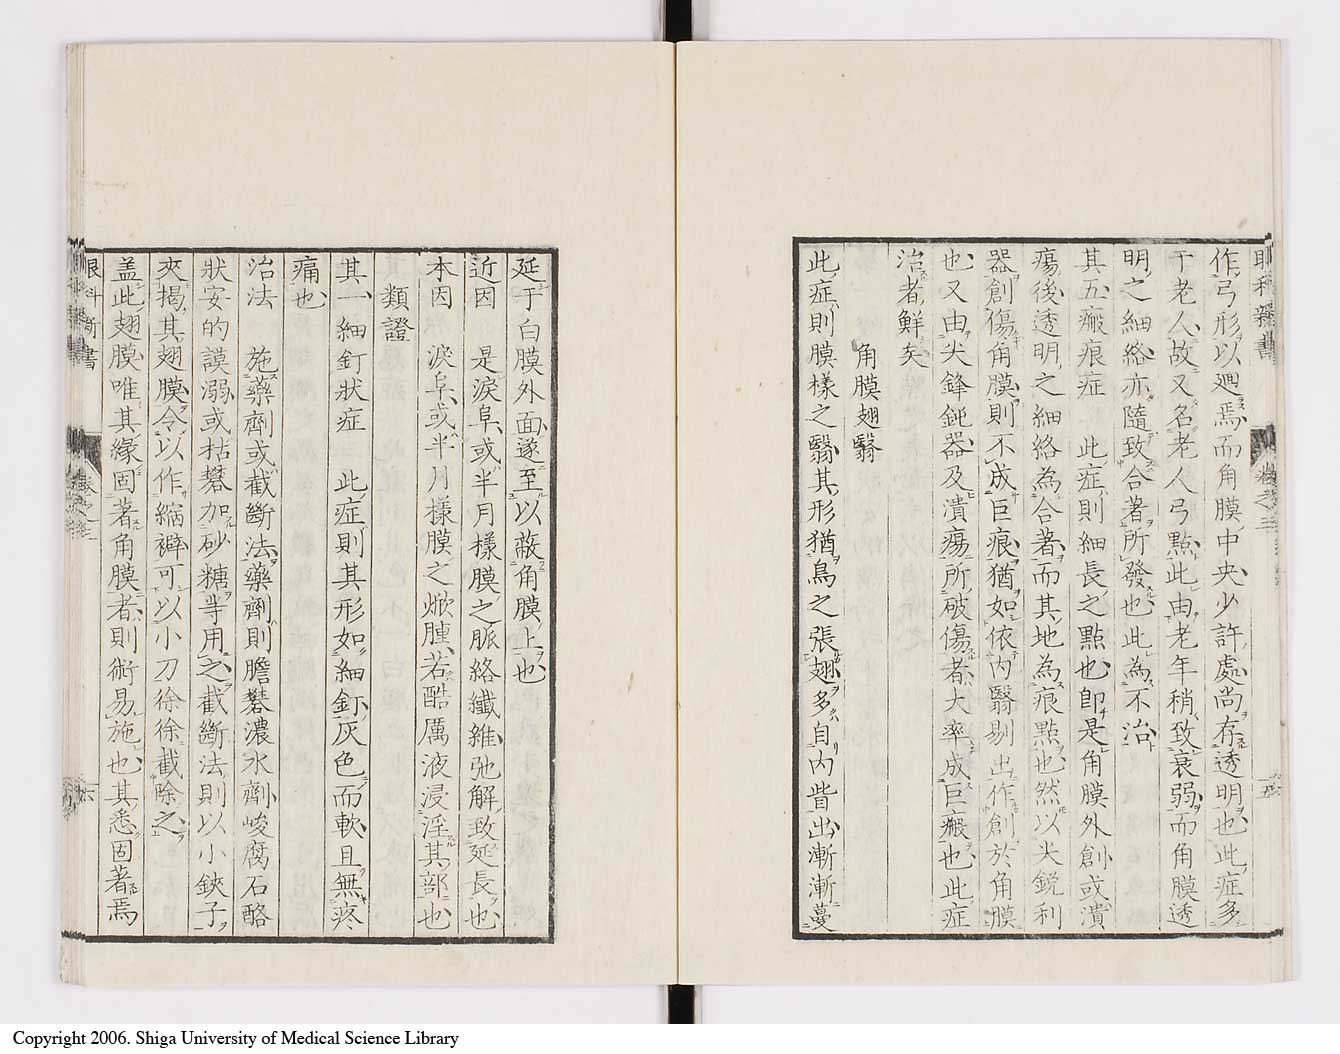 作弓形以廻焉而角膜中央少許處尚存透明也此症多
于老人故又名老人弓點此由老年稍致衰弱而角膜透
明之細絡亦隨致合著所發也此為不治
其五瘢痕症　此症則細長之點也即是角膜外創或潰
瘍後透明之細絡為合著而其地為痕點也然以尖鋭利
器創傷角膜則不成巨痕猶如依内翳剔出作創於角膜
也又由尖鋒鈍器及潰瘍所破傷者大率成巨瘢也此症
治者鮮矣
角膜翅翳
此症則膜樣之翳其形猶鳥之張翅多自内眥出漸漸蔓
延于白膜外面遂至以蔽角膜上也
近因　是淚阜或半月樣膜之脈絡纖維弛解致延長也
本因　淚阜或半月樣膜之焮腫若酷厲液浸淫其部也
類證
其一細釘狀症　此症則其形如細釘灰色而軟且無疼
痛也
治法　施藥劑或截斷法藥劑則膽礬濃水劑峻腐石酪
狀安的謨溺或枯礬加砂糖等用之截斷法則以小鋏子
夾揭其翅膜令以作縮襞可以小刀徐徐截除之
盖此翅膜唯其緣固著角膜者則術易施也其悉固著焉
眼科新書
卷之三
五
六